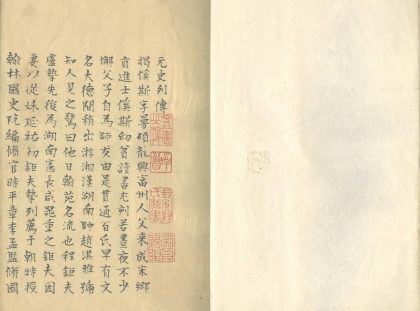 元史列傳
揭傒斯字曼碩龍興富州人父來成宋鄉
貢進士傒斯幼貧讀書尤刻苦晝夜不少
懈父子自為師友由是貫通百氏早有文
名大德間稍出游湘漢湖南帥趙淇雅號
知人見之驚曰他日翰苑名流也程鉅夫
盧摯先後為湖南憲長咸器重之鉅夫因
妻以從妹延祐初鉅夫摯列薦于朝特授
翰林國史院編脩官時平章李孟監脩國